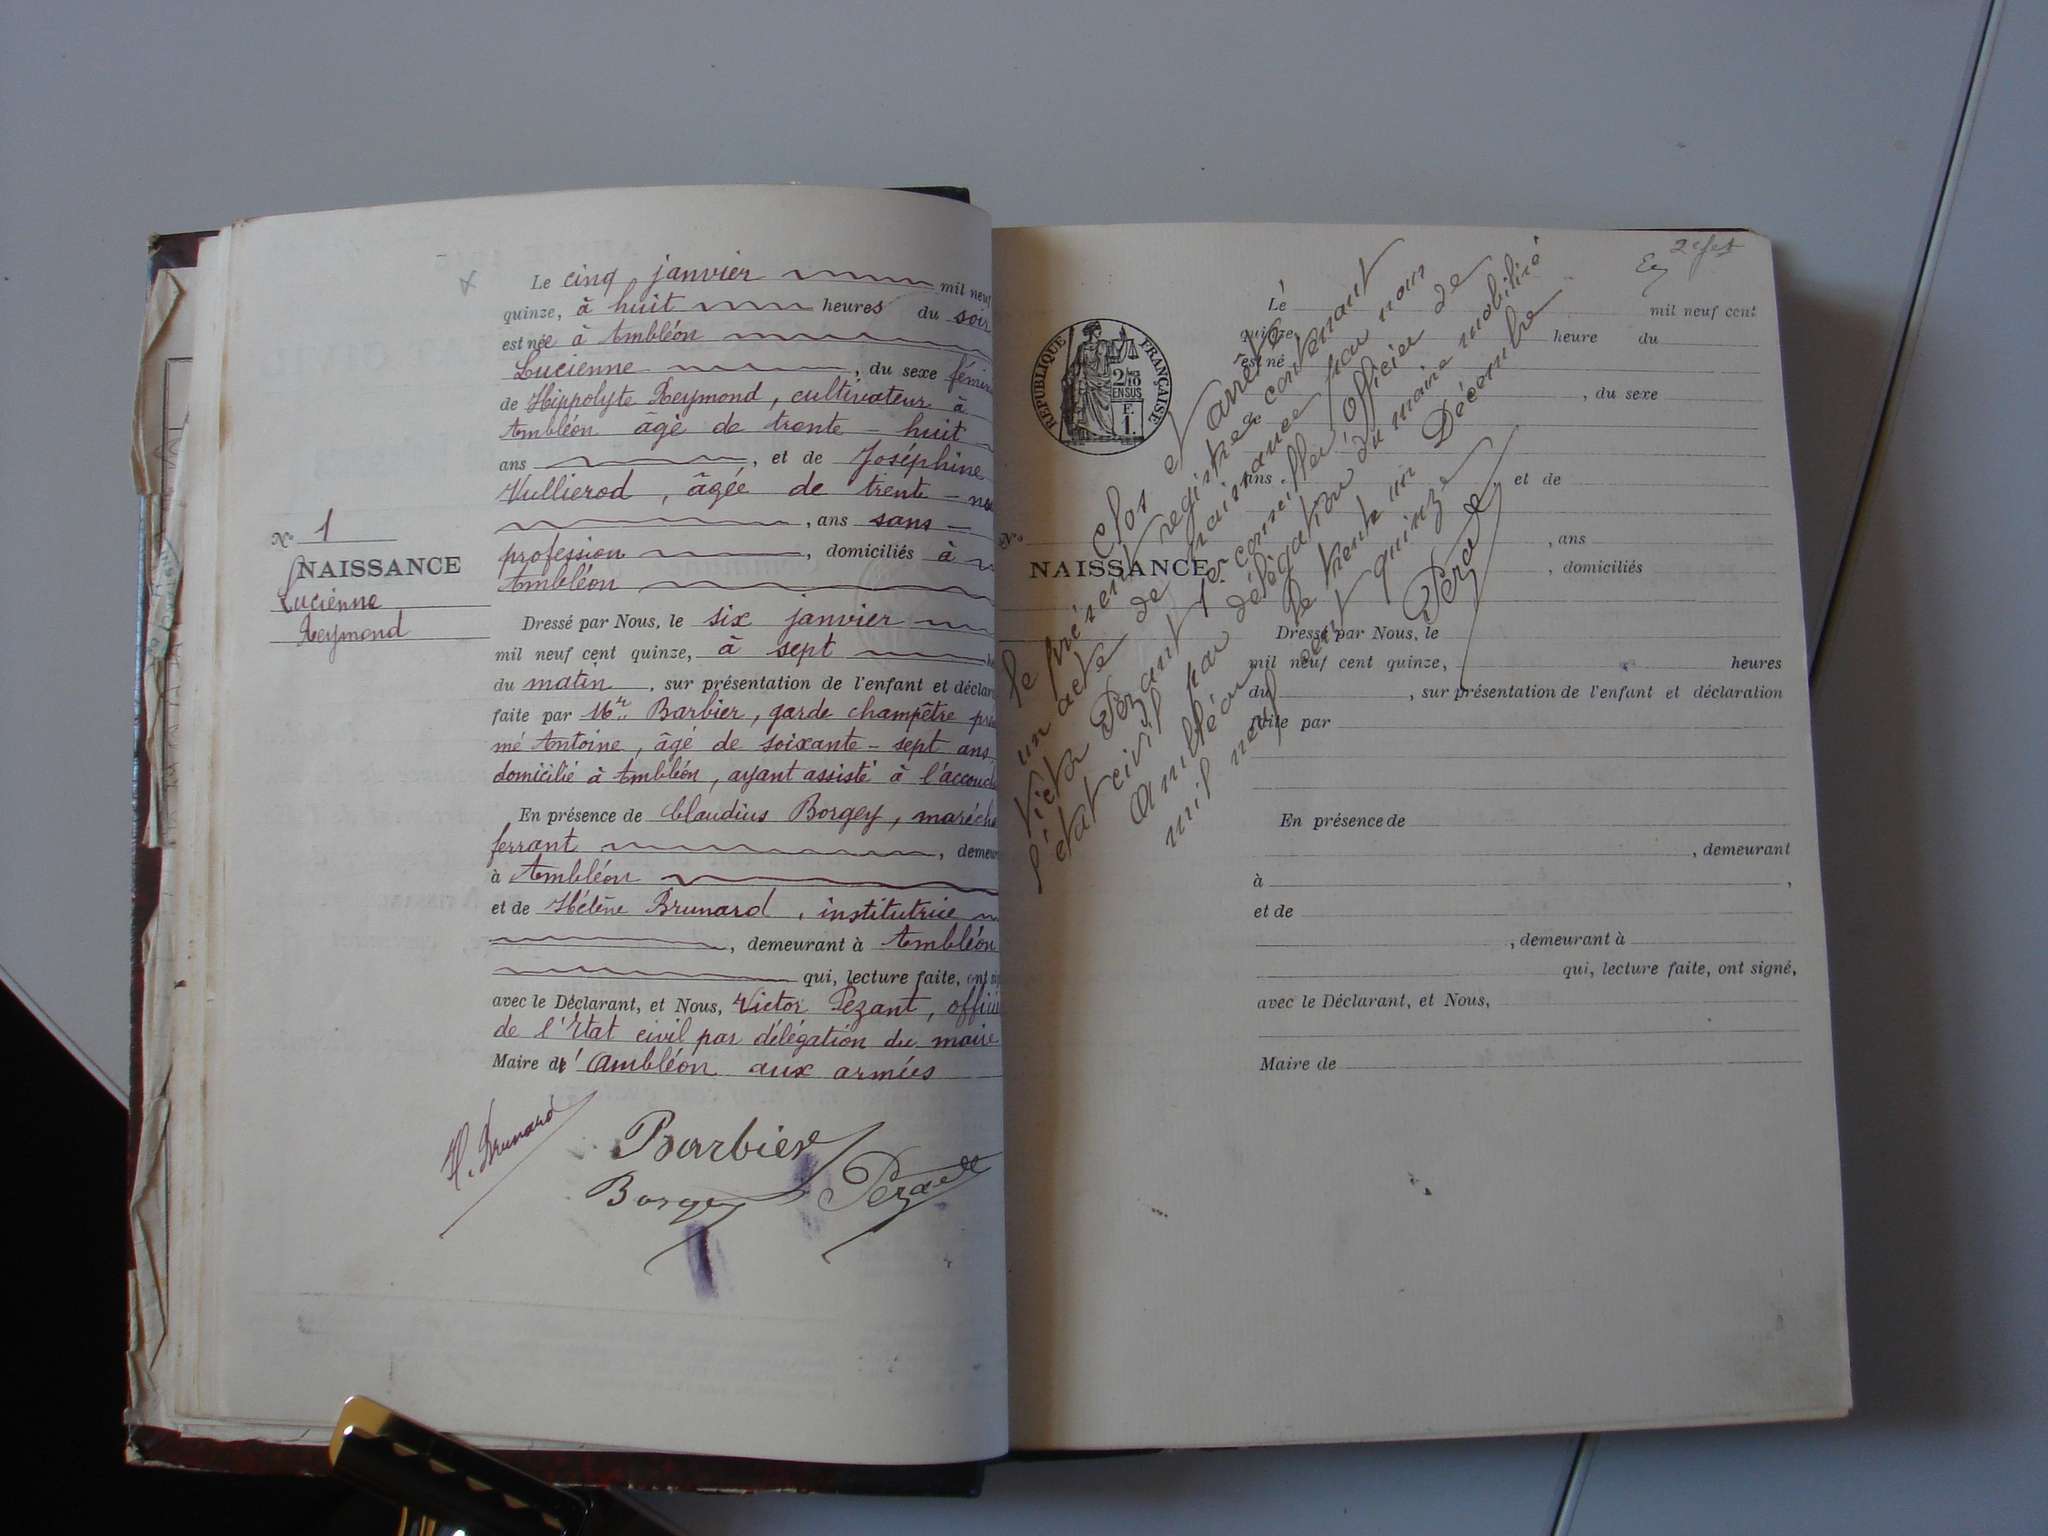 Le cinq janvier mil neuf
quinze, à huit heures du soir
est née à Ambléon
Lucienne, du sexe fémin
de Hippolyte Reymond, cultivateur à
Ambléon âgé de trente-huit
ans, et de Joséphine
Vullierod, âgée de trente-
, ans sans
profession, domiciliés à
Ambléon
Nº 1
NAISSANCE
Lucienne
Reymond
Dressé par Nous, le six janvier
mil neuf cent quinze, à sept
du matin, sur présentation de l'enfant et déclar
faite par Mr. Barbier, garde champêtre
mé Antoine, âgé de soixante-sept ans
domicilié à Ambléon, ayant assisté à l'accouch
En présence de Claudius Borgey, maréch
ferrant, demeur
à Ambléon
et de Hélène Brunard, institutrice
, demeurant à Ambléon
qui, lecture faite, ont si
avec le Déclarant, et Nous, Victor Pezant, offici
de l'Etat civil par délégation du maire
Maire de Ambléon aux armées
H. Brunard
Barbier
Borgey
Pezant
2e fet
RÉPUBLIQUE FRANÇAISE
2/10
EN SUS
F.
1.
Le mil neuf cent
quinze heure du
est né
, du sexe
de
ans, et de
Nº
, ans
NAISSANCE
, domiciliés
Dressé par Nous, le
mil neuf cent quinze, heures
du, sur présentation de l'enfant et déclaration
faite par
En présence de
, demeurant
à,
et de
, demeurant à
qui, lecture faite, ont signé,
avec le Déclarant, et Nous,
Maire de
Clos et arrêté
le présent registre contenant
un acte de naissance par nous
Victor Pezant 1er conseiller officier de
l'état civil par délégation du maire mobilisé
Ambléon le trente un Décembre
mil neuf cent quinze
Pezant